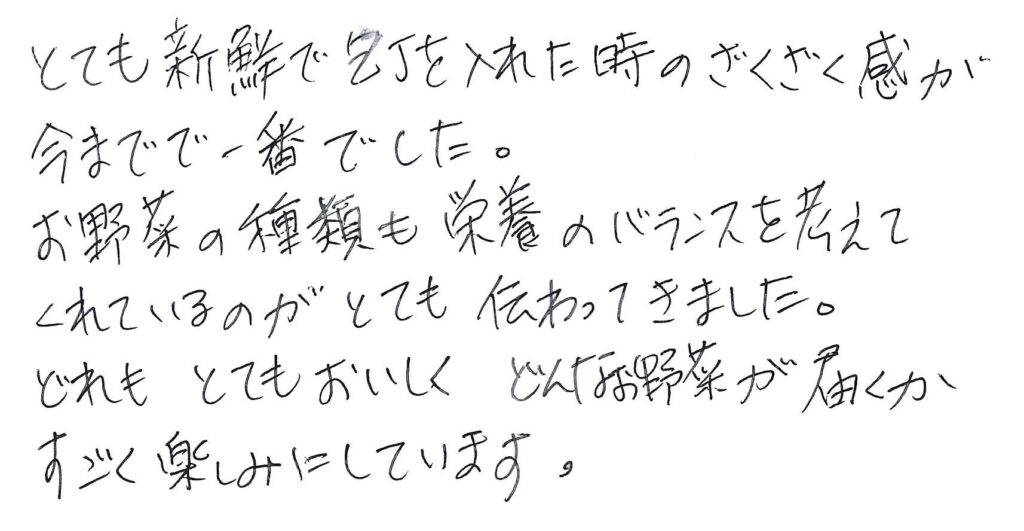 とても新鮮で包丁を入れた時のざくざく感が
今までで一番でした。
お野菜の種類も栄養のバランスを考えて
くれているのがとても伝わってきました。
どれも とてもおいしく どんなお野菜が届くか
すごく楽しみにしています。